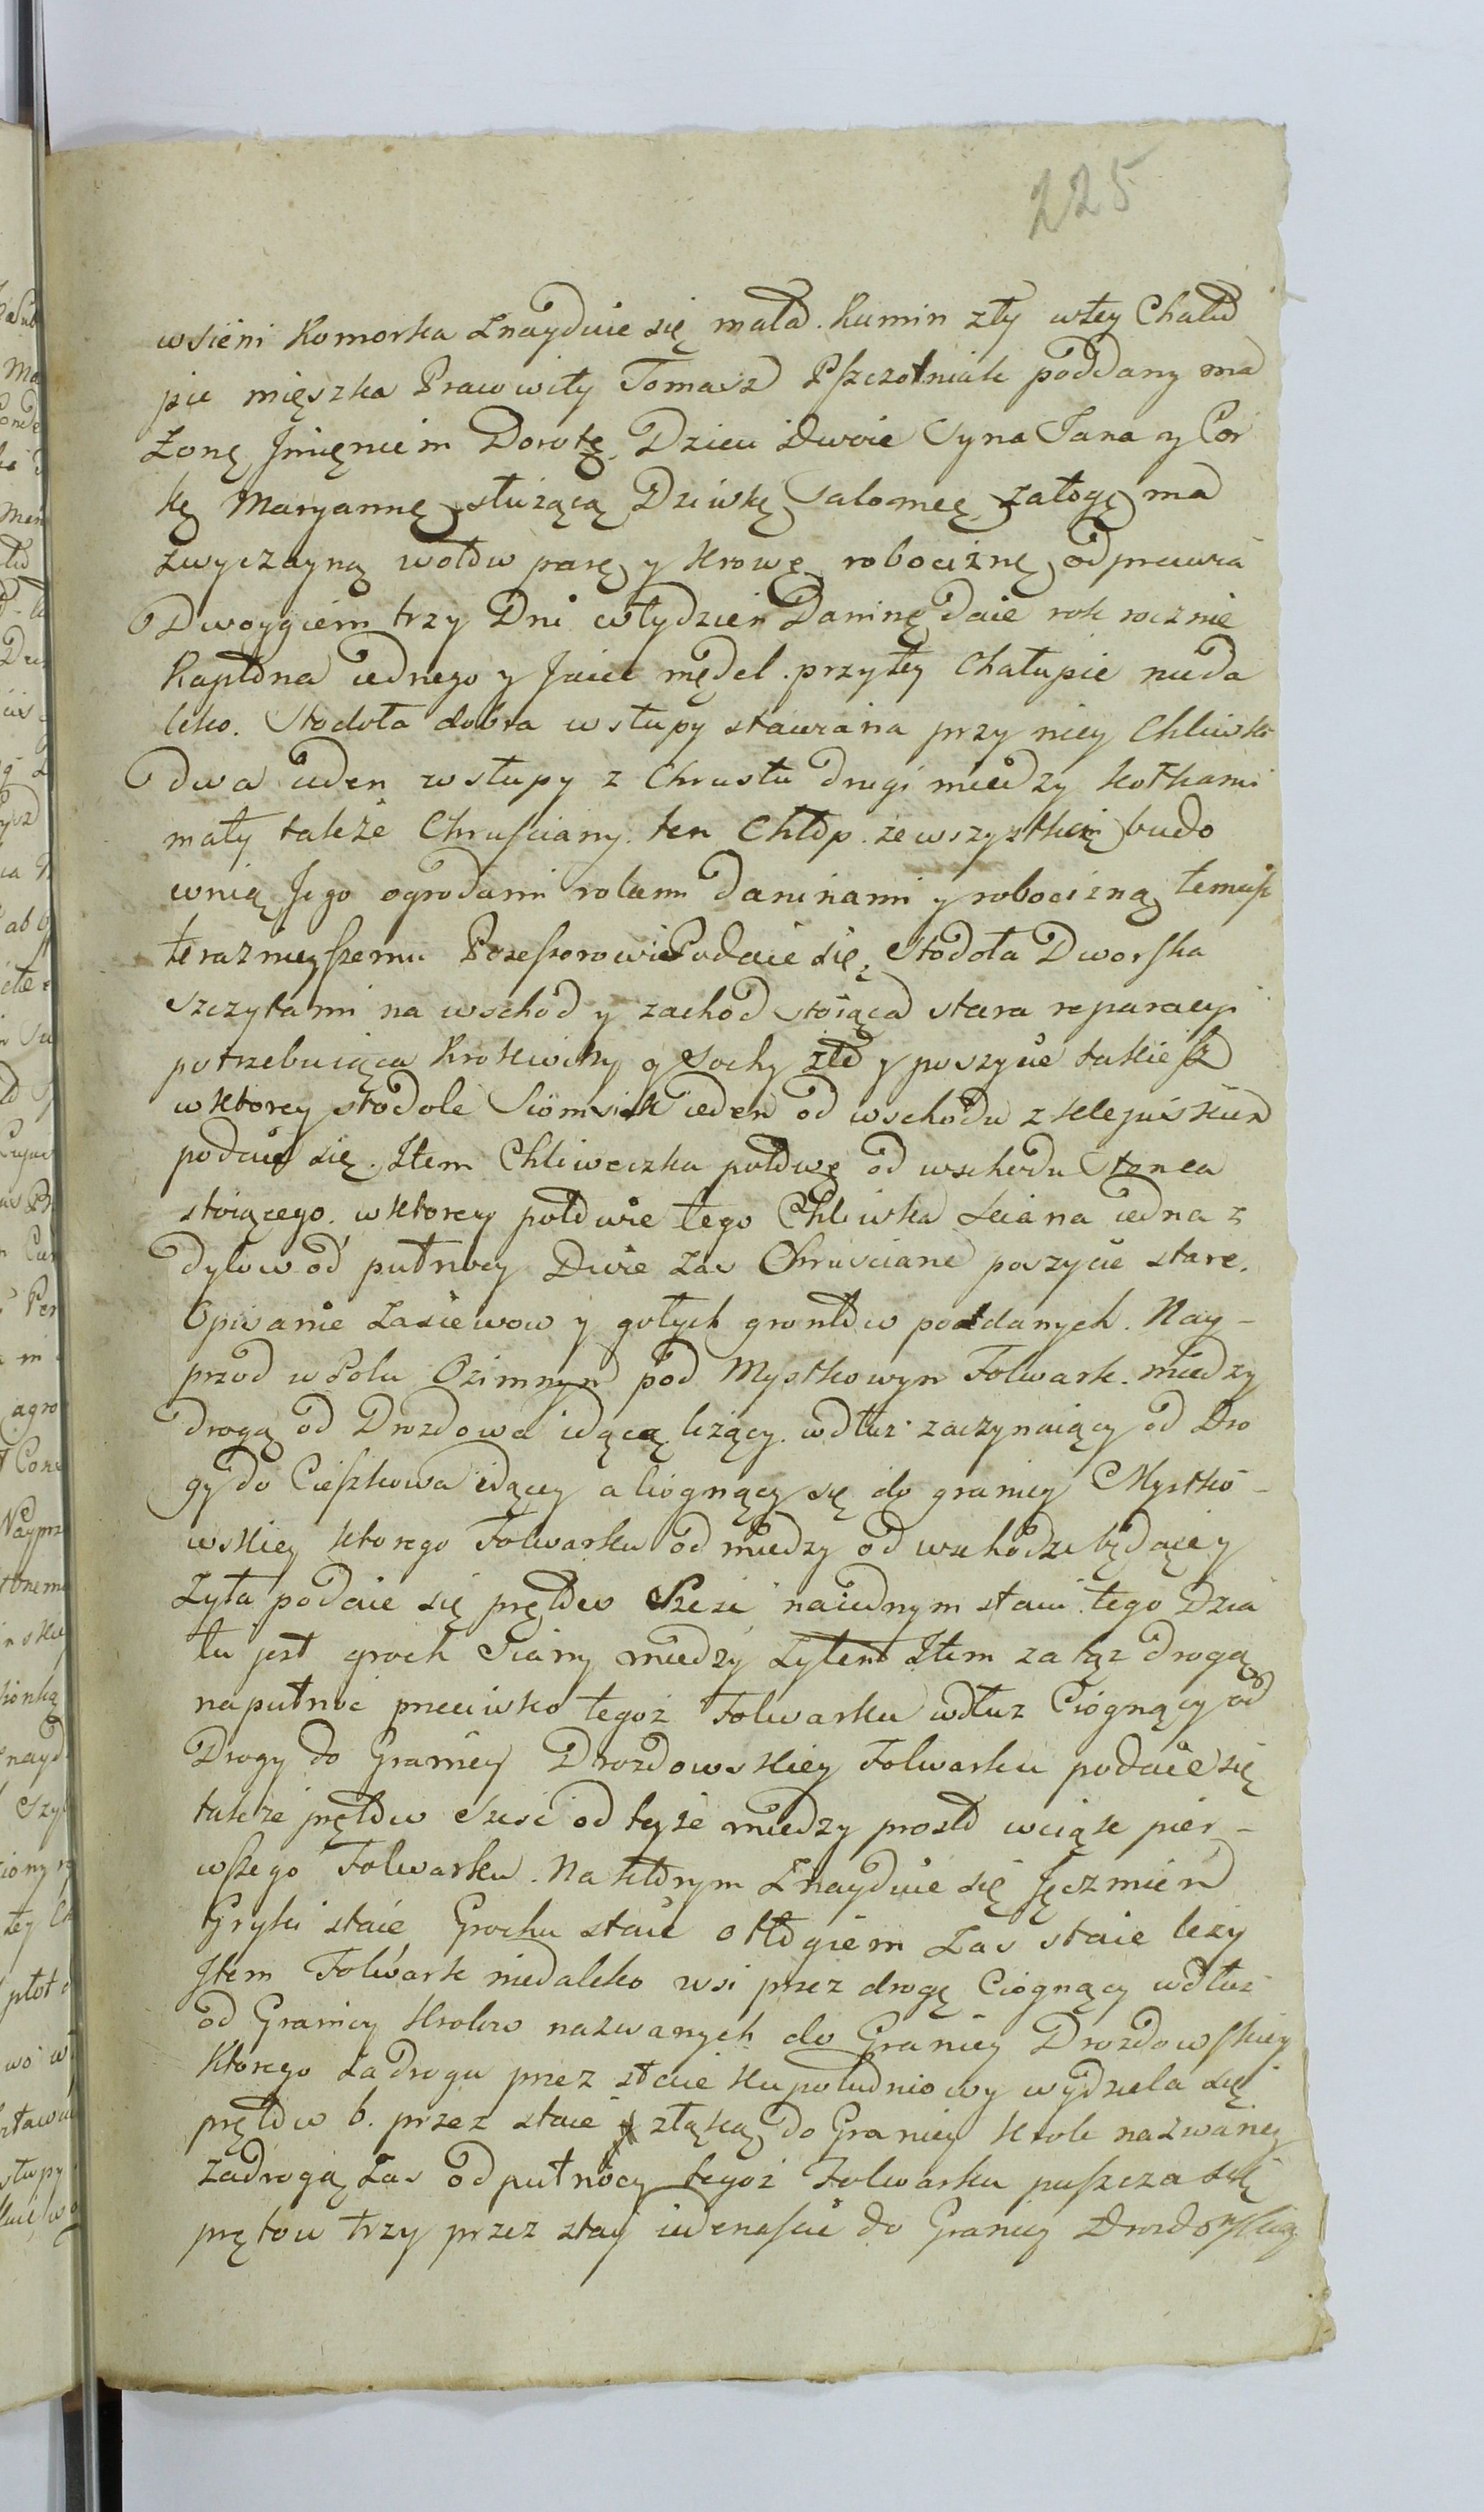 225
wsieni Komorka Znayduie się mała. Kumin zły wtey Chału
pie mięszka Prawowity Tomasz Pszczolniak poddany ma
Zonę Jmięniem Dorotę. Dzieci dwoie Syna Jana y Cor
kę Maryannę, służącą Dziwkę Salomeę, załogę ma
zwyczayną wołow parę y Krowę robociznę odprawia
Dwoygiem trzy Dni wtydzień Daninę daie rok rocznie
Kapłona iednego y Jaiec mędel. przytey Chałupie nieda
leko. Stodoła dobra wsłupy stawiana przy niey Chliwka
dwa ieden wsłupy z Chrustu drugi miedzy kołkami
mały takze Chruściany. ten Chłop. ze wszystkiem budo
wnią Jego ogrodami rolami daninami y robocizną temuż
teraznieyszemu Possessorowi Podaie się. Stodoła Dworska
szczytami na wschod y zachod stoiąca stara reparacyi
potrzebuiąca Krokiwki y Sochy złe y poszycie takiesz
wktorey stodole Siomsiek ieden od wschodu z klepiskiem
podaie się. Item Chliweczka połowę od wschodu Słonca
stoiącego. wktorey połowie tego Chliwka sciana iedna z
dylow od pułnocy Dwie Zas Chrusciane poszycie stare.
Opisanie Zasiewow y gołych grontow poddanych. Nay-
przod w Polu Ozimnym pod Mystkowym Folwark. miedzy
drogą od Drozdowa idącą lizący. wdłuz zaczynaiący od Dro
gy do Cieszkowa idącey a ciognący się do granicy Mystko-
wskiey ktorego Folwarku od miedzy od wschodu będącey
Zyta podaie się prętow Szesc naiednym staiu. tego Dzia
łu jest groch Siany miedzy Zytem Item za tąz drogą
na pułnoc przeciwko tegoz Folwarku wdłuz Ciognący od
Drogy do Granicy Drozdowskiey Folwarku podaie się
takze prętow Szesc od teyze miedzy prosto wciąz pier-
wszego Folwarku. Na ktorym Znayduie się Jęczmien
Gryki staie Grochu staie otłogiem Zas staie lezy
Item Folwark niedaleko wsi przez drogę Ciognący wdłuz
od Granicy Krolow nazwanych do Granicy Drozdowskiey
Ktorego Zadrogu przez staie ku południowy wydziela się
prętow 6. przez staie złąką do Granicy Krole nazwaney
Zadrogą Zas od pułnocy tegoz Folwarku puszcza się
prętow trzy przez stay iedenascie do Granicy Drozdowskiey